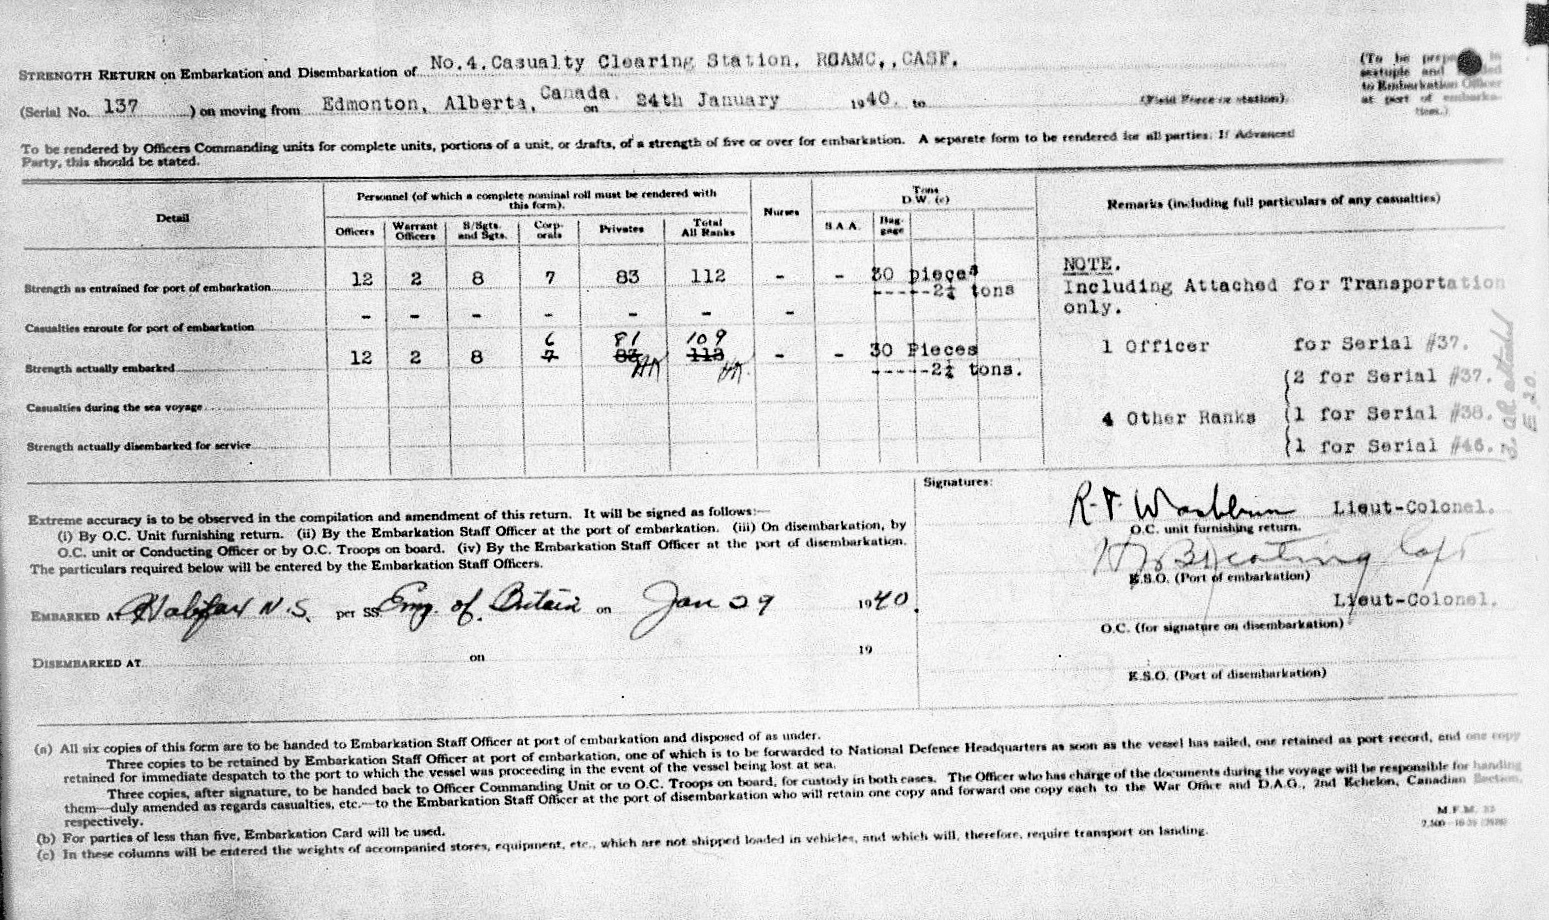 STRENGTH RETURN on Embarkation and Disembarkation of No.4.Casualty Clearing Station, RCAMC,,CASF.
(To be prepared in
sextuple and handed
to Embarkation Officer
at port of embarka-
tion.)
(Serial No. 137 ) on moving from Edmonton, Alberta, Canada. on 24th January 1940. to (Field Force or station).
To be rendered by Officers Commanding units for complete units, portions of a unit, or drafts, of a strength of five or over for embarkation. A separate form to be rendered for all parties. If Advanced
Party, this should be stated.
Detail
Personnel (of which a complete nominal roll must be rendered with
this form).
Officers Warrant Officers S/Sgts. and Sgts. Corp-orals Privates Total All Ranks
Nurses
Tons
D.W. (c)
S.A.A. Bag-gage
Remarks (including full particulars of any casualties)
Strength as entrained for port of embarkation 12 2 8 7 83 112 - - 30 pieces
-----2¼ tons
Casualties enroute for port of embarkation - - - - - - -
6 81 109
Strength actually embarked 12 2 8 7 83 112 - - 30 Pieces
-----2¼ tons.
Casualties during the sea voyage
Strength actually disembarked for service
NOTE.
Including Attached for Transportation
only.
1 Officer for Serial #37.
(2 for Serial #37.
4 Other Ranks (1 for Serial #38.
(1 for Serial #46.
Extreme accuracy is to be observed in the compilation and amendment of this return. It will be signed as follows:—
(i) By O.C. Unit furnishing return. (ii) By the Embarkation Staff Officer at the port of embarkation. (iii) On disembarkation, by
O.C. unit or Conducting Officer or by O.C. Troops on board. (iv) By the Embarkation Staff Officer at the port of disembarkation.
The particulars required below will be entered by the Embarkation Staff Officers.
EMBARKED AT Halifax N.S. per SS. Emp. of. Britain on Jan 29 1940.
DISEMBARKED AT on 19
Signatures:
R.T. Washburn Lieut-Colonel.
O.C. unit furnishing return.
Keating Capt
E.S.O. (Port of embarkation)
Lieut-Colonel.
O.C. (for signature on disembarkation)
E.S.O. (Port of disembarkation)
(a) All six copies of this form are to be handed to Embarkation Staff Officer at port of embarkation and disposed of as under.
Three copies to be retained by Embarkation Staff Officer at port of embarkation, one of which is to be forwarded to National Defence Headquarters as soon as the vessel has sailed, one retained as port record, and one copy
retained for immediate despatch to the port to which the vessel was proceeding in the event of the vessel being lost at sea.
Three copies, after signature, to be handed back to Officer Commanding Unit or to O.C. Troops on board, for custody in both cases. The Officer who has charge of the documents during the voyage will be responsible for handing
them—duly amended as regards casualties, etc.—to the Embarkation Staff Officer at the port of disembarkation who will retain one copy and forward one copy each to the War Office and D.A.G., 2nd Echelon, Canadian Section,
respectively.
(b) For parties of less than five, Embarkation Card will be used.
(c) In these columns will be entered the weights of accompanied stores, equipment, etc., which are not shipped loaded in vehicles, and which will, therefore, require transport on landing.
M.F.M.